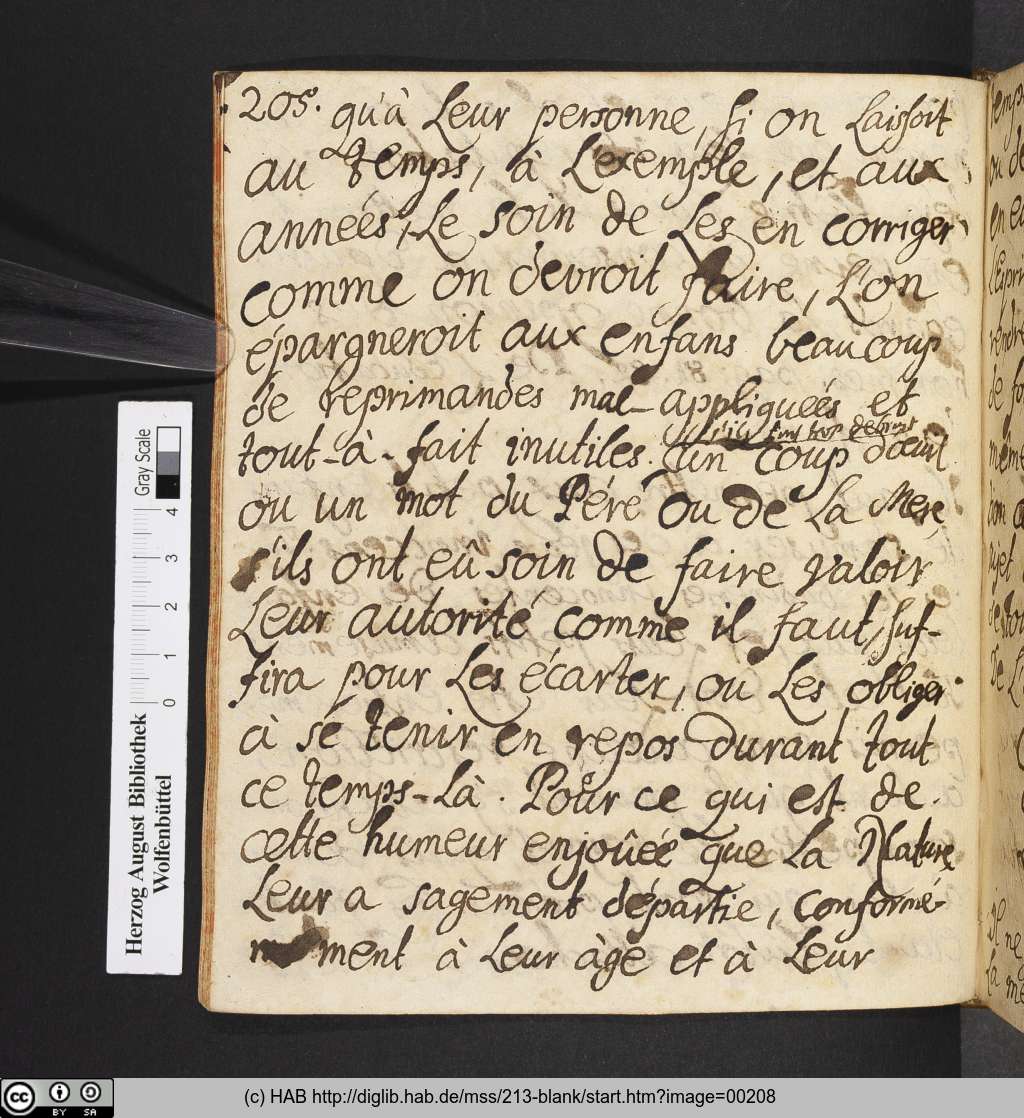 205. qu'à Leur personne, si on Laissoit
au temps, à L'exemple, et aux
années, Le soin de Les en corriger
comme on devroit faire, L'on
épargneroit aux enfans beaucoup
de reprimandes mal-appliqueés et
s'ils font trop de bruit
tout-à-fait inutiles. un coup d'œuil
ou un mot du Pére ou de La Mere,
s'ils ont eû soin de faire valoir
Leur autorité comme il faut, suf-
fira pour Les écarter, ou Les obliger
à se tenir en repos durant tout
ce temps-Là. Pour ce qui est de
cette humeur enjoûeé que La Nature
Leur a sagement départie, conformé-
ment à Leur àge et à Leur
Herzog August Bibliothek
Wolfenbüttel
Gray Scale
0 1 2 3 4
(c) HAB http://diglib.hab.de/mss/213-blank/start.htm?image=00208
cc BY SA